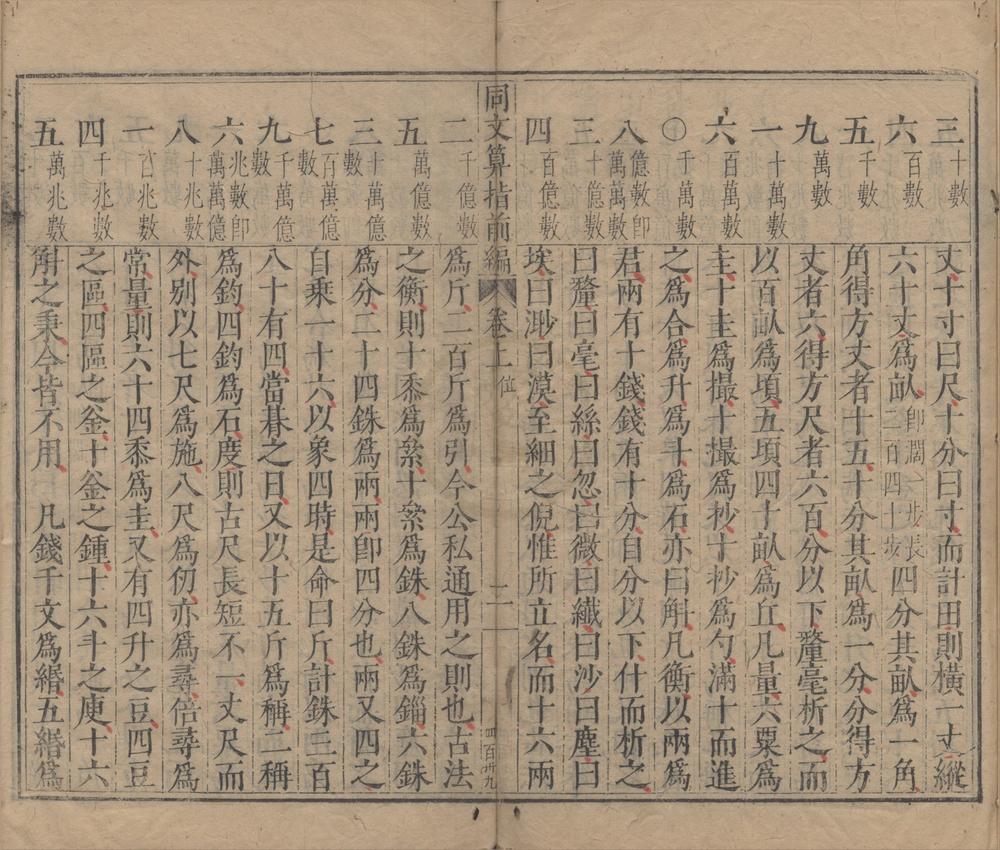 三 十數 丈十寸曰尺十分曰寸而計田則橫一丈縱
六 百數 六十丈爲畝卽濶一步長二百四十步四分其畝爲一角
五 千數 角得方丈者十五十分其畝爲一分分得方
九 萬數 丈者六得方尺者六百分以下釐毫析之而
一 十萬數 以百畝爲頃五頃四十畝爲丘凡量六粟爲
六 百萬數 圭十圭爲撮十撮爲抄十抄爲勺滿十而進
〇 千萬數 之爲合爲升爲斗爲石亦曰斛凡衡以兩爲
八 億數卽萬萬數 君兩有十錢錢有十分自分以下什而析之
三 十億數 曰釐曰毫曰絲曰忽曰微曰纖曰沙曰塵曰
四 百億數 埃曰渺曰漠至細之倪惟所立名而十六兩
同文算指前編 卷上 位 二 四百卅九
二 千億數 爲斤二百斤爲引今公私通用之則也古法
五 萬億數 之衡則十黍爲絫十絫爲銖八銖爲錙六銖
三 十萬億數 爲分二十四銖爲兩兩卽四分也兩又四之
七 百萬億數 自乘一十六以象四時是命曰斤計銖三百
九 千萬億數 八十有四當朞之日又以十五斤爲稱二稱
六 兆數卽萬萬億 爲鈞四鈞爲石度則古尺長短不一丈尺而
八 十兆數 外別以七尺爲施八尺爲仞亦爲尋倍尋爲
一 百兆數 常量則六十四黍爲圭又有四升之豆四豆
四 千兆數 之區四區之釜十釜之鍾十六斗之庾十六
五 萬兆數 斛之秉今皆不用 凡錢千文爲緡五緡爲